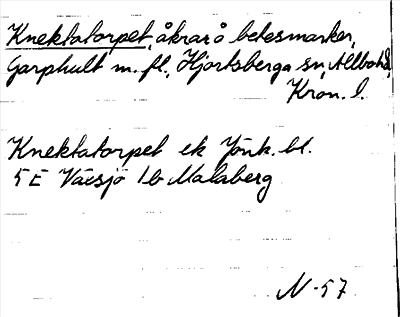 Knektatorpet, åkrar å betesmarker,
Garphult m. fl., Hjortsberga sn, Allbo hd,
Kron. l.
Knektatorpet ek Jönk. bl.
5 E Växjö 1b Malaberg
N-57